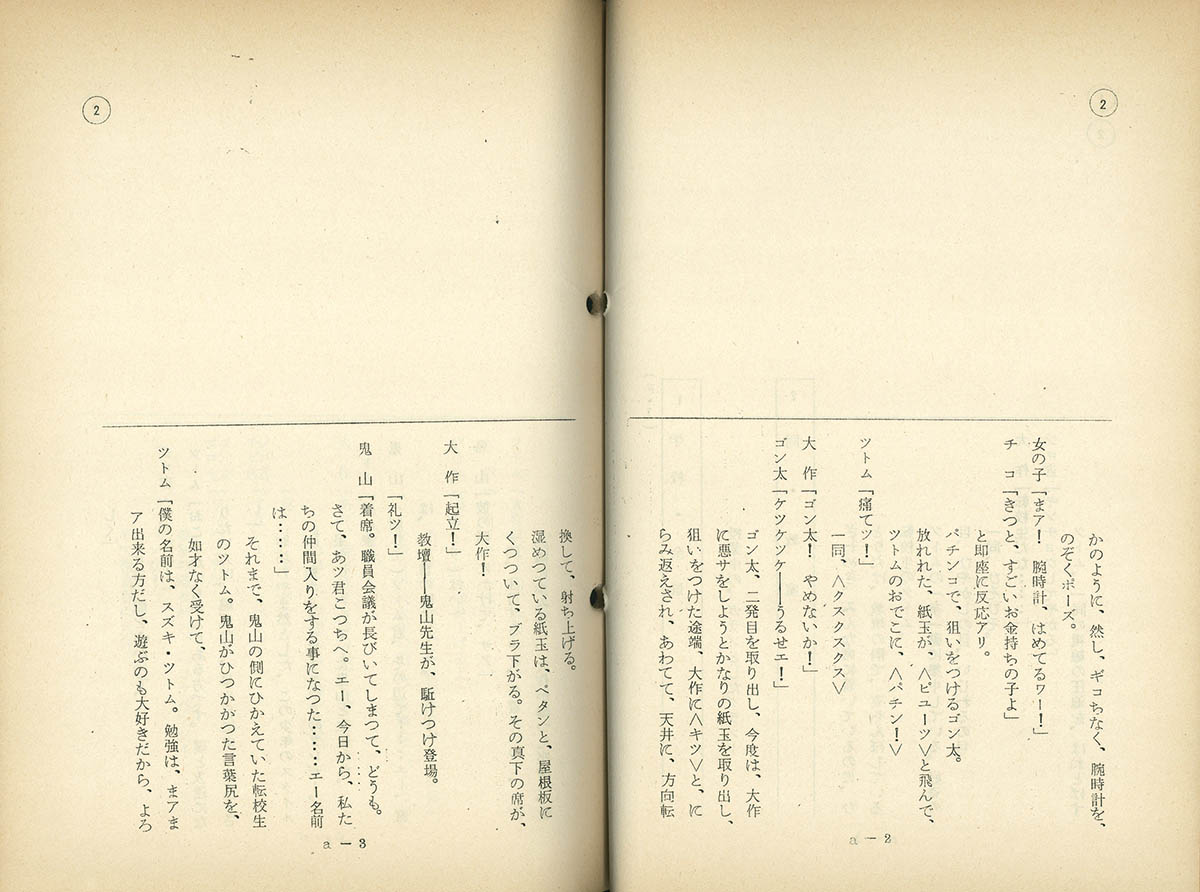 2
かのように、然し、ギコちなく、腕時計を、
のぞくポーズ。
女の子「まア！　腕時計、はめてるヮー！」
チ　コ「きつと、すごいお金持ちの子よ」
と即座に反応アリ。
パチンコで、狙いをつけるゴン太。
放れれた、紙玉が、＜ピユーツ＞と飛んで、
ツトムのおでこに、＜パチン！＞
ツトム「痛てツ！」
一同、＜クスクスクス＞
大　作「ゴン太！　やめないか！」
ゴン太「ケツケツケケ――うるせエ！」
ゴン太、二発目を取り出し、今度は、大作
に悪サをしようとかなりの紙玉を取り出し、
狙いをつけた途端、大作に＜キツ＞と、に
らみ返えされ、あわてて、天井に、方向転
a－2
2
換して、射ち上げる。
湿めつている紙玉は、ペタンと、屋根板に
くつついて、ブラ下がる。その真下の席が、
大作！
大　作「起立！」
教壇――鬼山先生が、駈けつけ登場。
「礼ツ！」
鬼　山「着席。職員会議が長びいてしまつて、どうも。
さて、あツ君こつちへ。エー、今日から、私た
ちの仲間入りをする事になつた‥‥‥エー名前
は‥‥‥」
それまで、鬼山の側にひかえていた転校生
のツトム。鬼山がひつかがつた言葉尻を、
如才なく受けて、
ツトム「僕の名前は、スズキ・ツトム。勉強は、まアま
ア出来る方だし、遊ぶのも大好きだから、よろ
a－3